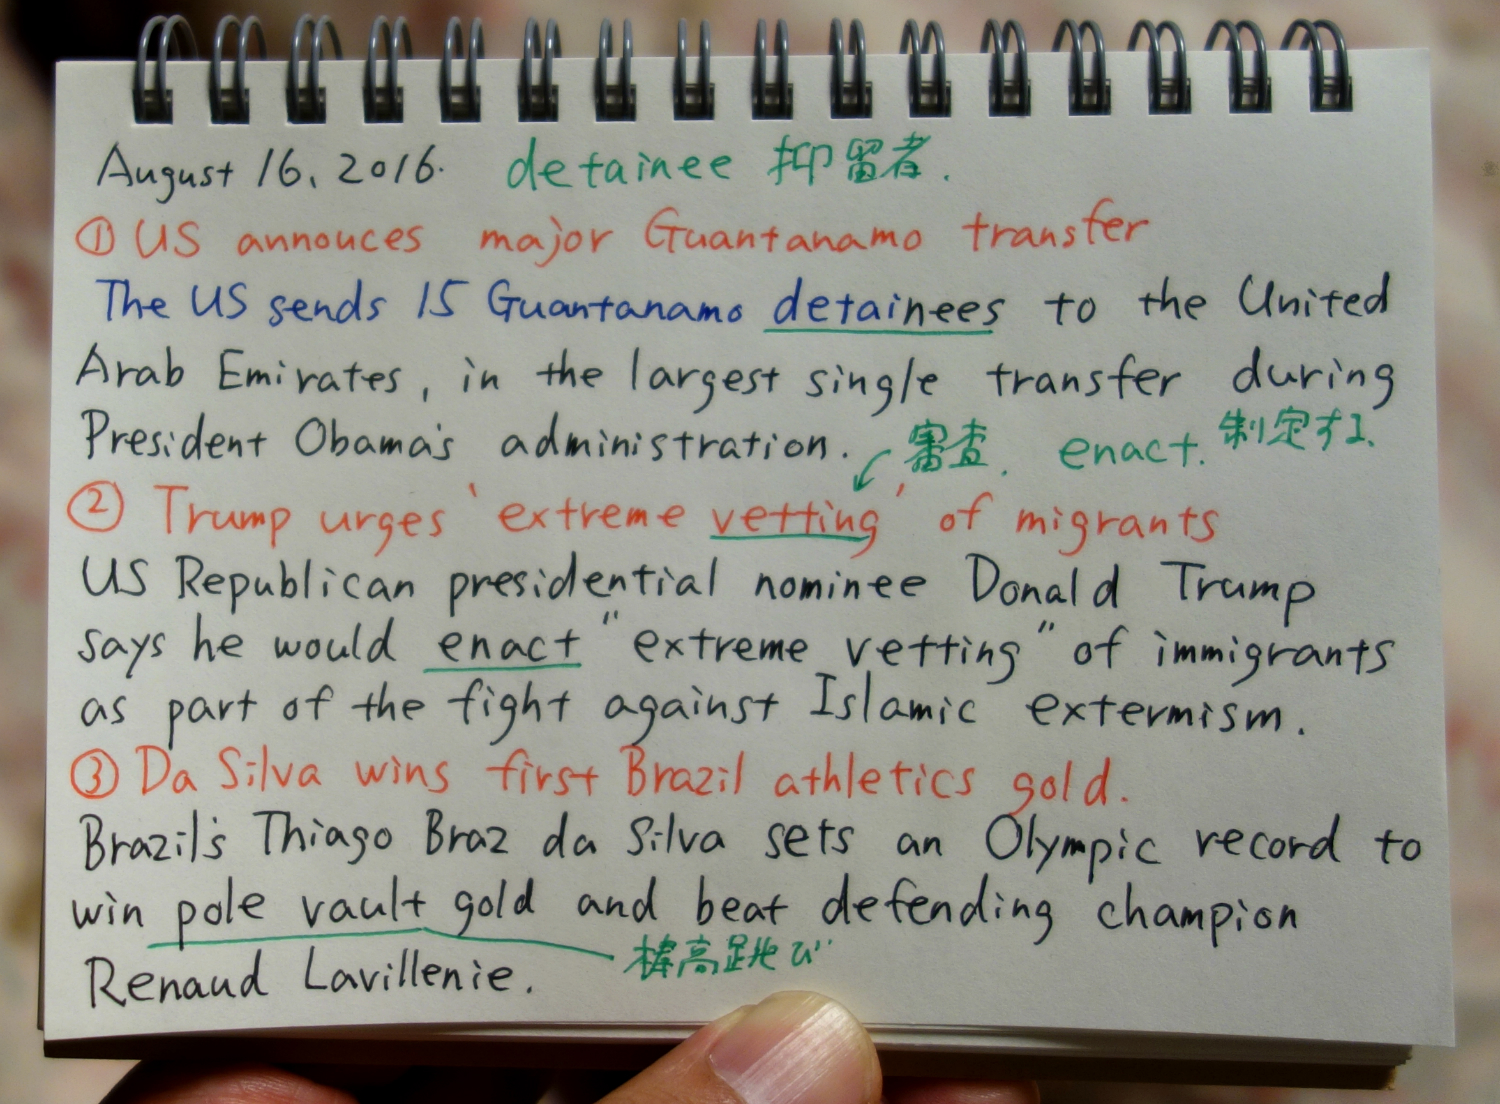 August 16, 2016. detainee 抑留者.
① US annouces major Guantanamo transfer
The US sends 15 Guantanamo detainees to the United
Arab Emirates, in the largest single transfer during
President Obama's administration. 審査. enact. 制定する.
② Trump urges 'extreme vetting' of migrants
US Republican presidential nominee Donald Trump
says he would enact "extreme vetting" of immigrants
as part of the fight against Islamic extermism.
③ Da Silva wins first Brazil athletics gold.
Brazil's Thiago Braz da Silva sets an Olympic record to
win pole vault gold and beat defending champion
Renaud Lavillenie. 棒高跳び